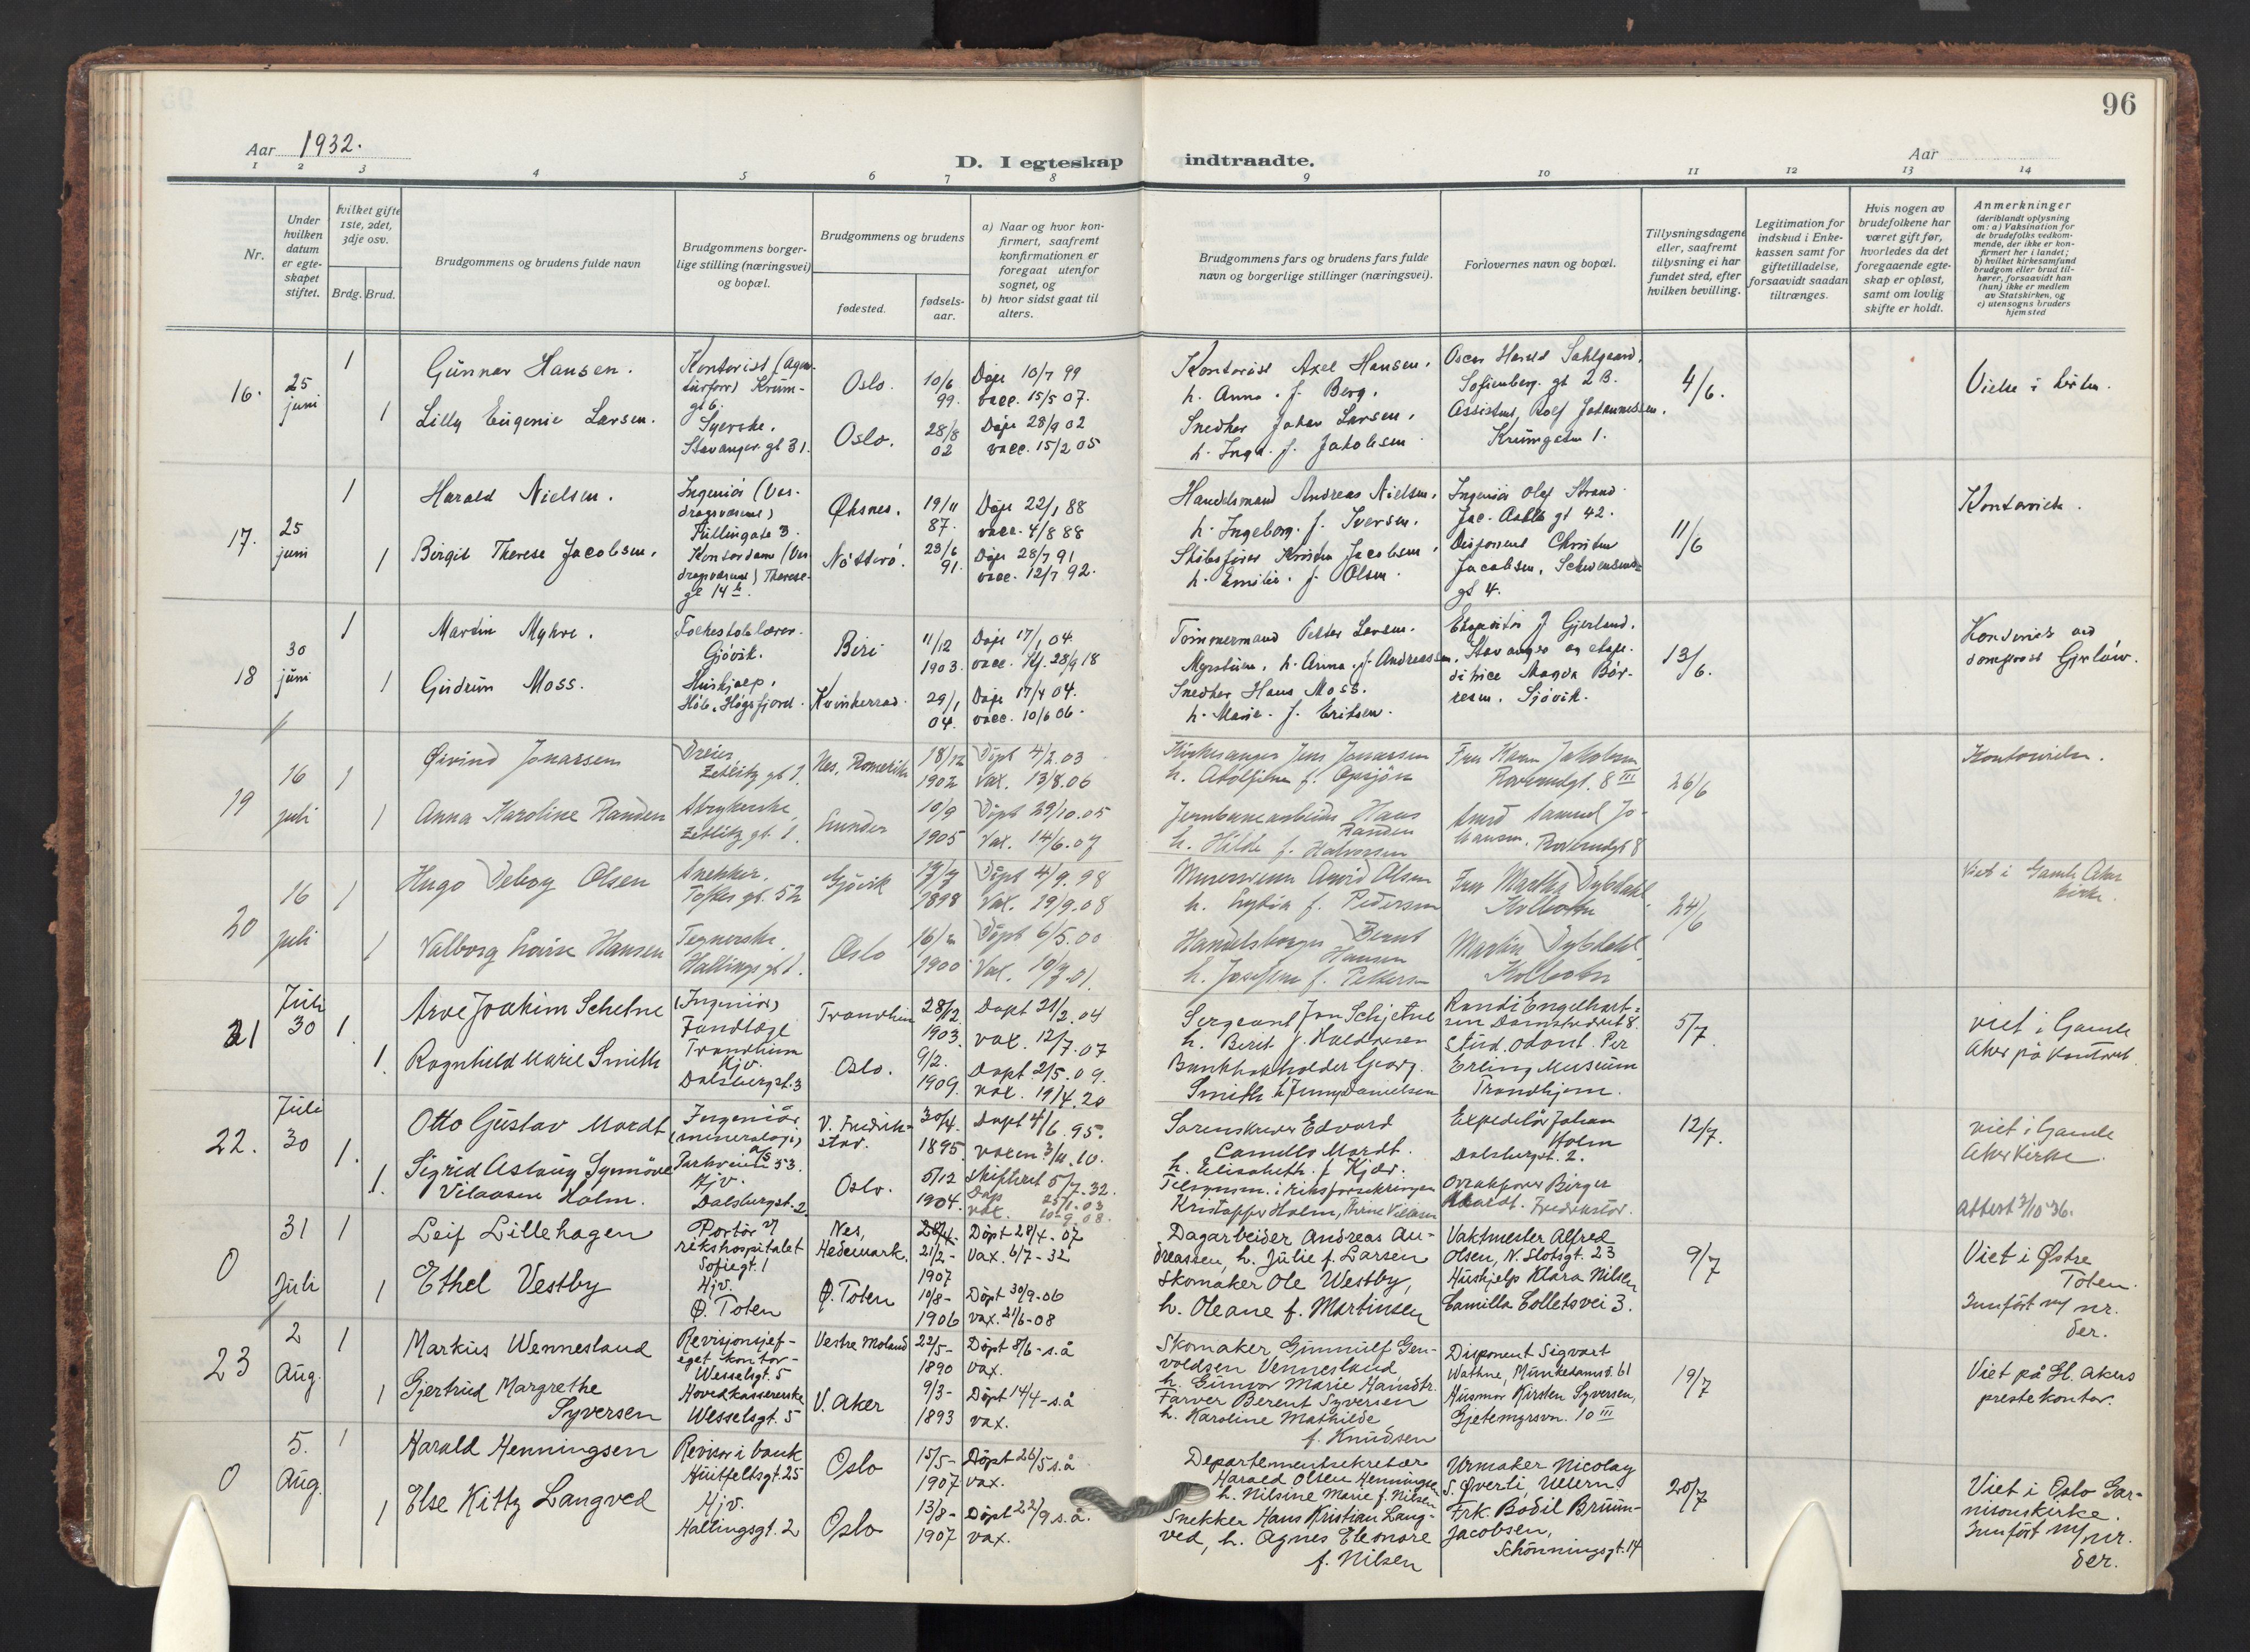 96
Aar 1932.
D. I egteskap indtraadte.
Aar
1 2 3 4 5 6 7 8 9 10 11 12 13 14
Nr.
Under
hvilken
datum
er egte-
skapet
stiftet.
Hvilket gifte
1ste, 2det,
3dje osv.
Brdg.
Brud.
Brudgommens og brudens fulde navn
Brudgommens borger-
lige stilling (næringsvei)
og bopæl.
Brudgommens og brudens
fødested.
fødsels-
aar.
a) Naar og hvor kon-
firmert, saafremt
konfirmationen er
foregaat utenfor
sognet, og
b) hvor sidst gaat til
alters.
Brudgommens fars og brudens fars fulde
navn og borgerlige stillinger (næringsvei).
Forlovernes navn og bopæl.
Tillysningsdagene
eller, saafremt
tillysning ei har
fundet sted, efter
hvilken bevilling.
Legitimation for
indskud i Enke-
kassen samt for
giftetilladelse,
forsaavidt saadan
tiltrænges.
Hvis nogen av
brudefolkene har
været gift før,
hvorledes da det
foregaaende egte-
skap er opløst,
samt om lovlig
skifte er holdt.
Anmerkninger
(deriblandt oplysning
om: a) Vaksination for
de brudefolks vedkom-
mende, der ikke er kon-
firmert her i landet;
b) hvilket kirkesamfund
brudgom eller brud til-
hører, forsaavidt han
(hun) ikke er medlem
av Statskirken, og
c) utensogns bruders
hjemsted
16.
25
juni
1
Gunnar Hansen.
Kontorist
Oslo.
10/6
99.
Døpt 10/7 99
vacc. 15/5 07.
Kontorist Axel Hansen.
h. Anna. f. Berg.
Oscar Harald Sahlgaard.
Sofienberg. gt 2 B.
4/6.
1
Lilly Eugenie Larsen.
Syerske.
Stavanger. gt 31.
Oslo.
28/8
02
Døpt 28/9 02
vacc. 15/2 05
Snedker Johan Larsen.
h. Inga. f. Jakobsen
Assistent, Rolf Johannessen.
Krumgaten 1.
17.
25
juni
1
Harald Nielsen.
Ingeniør
Øksnes.
19/11
87.
Døpt 22/1 88
vacc. 4/8 88
Handelsmand Andreas Nielsen.
h. Ingeborg. f. Iversen.
Ingeniør Olaf Strand.
Jac. Aalls gt 42.
11/6
1
Birgit Therese Jacobsen.
Kontordame
Nøtterø.
23/6
91.
Døpt 28/7 91
vacc. 12/7 92.
Skibsfører Kristen Jacobsen.
h. Emilie. f. Olsen.
Disponent Christen
Jacobsen.
gt 4.
18
30
juni
1
Martin Myhre.
Folkeskolelærer.
Gjøvik.
Biri
11/12
1903.
Døpt 17/1 04.
vacc. Kf. 28/9 18
Tømmermand Petter Larsen.
h. Anna. f. Andreassen.
J. Gjerland.
Stavanger og
Magda Bør-
resen. Gjøvik.
13/6.
domprost Gjeløw.
1
Gudrun Moss.
Hushjælp.
Høle, Høgsfjord.
Kvinherred.
29/1
04.
Døpt 17/4 04.
vacc. 10/6 06.
Snedker Hans Moss.
h. Marie. f. Eriksen.
19
16
juli
1
Øivind Jonassen
Dreier
Zetlitz gt 1.
Nes, Romerike
18/12
1902
Døpt 4/2.03
Vax. 13/8.06
Kirkesanger Jens Jonassen
Fru Karen Jakobsen
26/6
Kontorvielse.
1
Anna Karoline Randen
Strykerske,
Zetlitz gt. 1.
Lunder
10/9
1905
Døpt 29/10.05
Vax. 14/6.07
Jernbanearbeider Hans
Randen
h. Hilde f. Halvorsen
20
16
juli
1
Hugo Deboy Olsen
Snekker.
Toftes gt. 52
Gjøvik
1898
Døpt 4/9.98
Vax. 19/9.08
Murersvenn Arvid Olsen
f. Pedersen
Fru Martha Dybdahl.
Kolbotn
24/6
Viet i Gamle Aker
kirke.
1
Valborg Louise Hansen
Tegnerske.
Hallings gt.
Oslo
1900
Døpt 6/5.00
Handelsborger Bernt
Hansen
Martin Dybdahl.
Kolbotn
21
Juli
30
1.
Arve Joakim Schetne
(Ingeniør)
Tandlæge
Trondhjem
28/12
1903.
Døpt 21/2.04
vax. 12/7.07
Sergeant Jon Schjetne
h. Berit f. Haldorsen
Randi Engelhart-
sen
5/7.
viet i Gamle
Aker på kontoret
1.
Ragnhild Marie Smith
Hjv.
Dalsbergst. 3
Oslo.
9/2.
1909.
Døpt 2/5.09.
vax. 19/4.20
Bankbokholder Georg.
Smith h. Jenny Danielsen
Stud. odont. Per
Erling Museum
Trondhjem.
22.
Juli
30
1.
Otto Gustav Mordt
Ingeniør
Parkveien 53.
V. Fredrik-
stad.
30/4.
1895.
Døpt 4/6.95.
Sorenskriver Edvard
Camillo Mordt.
h. Elisabeth. f. Kjær.
Expeditør Johan
Holm
Dalsbergst. 2.
12/7.
viet i Gamle
Aker Kirke.
1.
Sigrid Aslaug Synnøve
Vilaasen Holm.
Hjv.
Dalsbergst. 2
Oslo.
5/12
1904.
Skifteret 5/7.32.
Kristoffer Holm,
Birger
Mordt. Fredrikstad.
Attest 3/10 36.
0
31
Juli
1
Leif Lillehagen
Portør v/
rikshospitalet
Sofiegt. 1
Nes,
Hedemark.
21/2-
1907
Døpt 28/4 - 07
Vax. 6/7 - 32
Dagarbeider Andreas An-
dreassen, h. Julie f. Larsen
Vaktmester Alfred
Olsen, N. Slotsgt. 23
9/7
Viet i Østre
Toten.
Innført m/ nr.
der.
1
Ethel Vestby
Hjv.
Ø. Toten
Ø. Toten
10/8-
1906
Døpt 30/9-06
vax. 21/6-08
Skomaker Ole Westby,
h. Oleane f. Martinsen
Hushjelp Klara Nilsen
Camilla Colletsvei 3.
23
2
Aug.
1
Markus Wennesland
Revisjonsjef-
eget kontor-
Wesselsgt. 5
Vestre Moland
22/5-
1890
Døpt 8/6-s.å
vax.
Skomaker Gunnulf Gun-
voldsen Vennesland
h. Gunvor Marie Hansdtr.
Disponent Sigvart
Wathne, Munkedamsv. 61
19/7
Viet på Gl. Akers
prestekontor.
1
Gjertrud Margrethe
Syversen
Hovedkassererske
Wesselsgt. 5
V. Aker
9/3-
1893
Døpt 14/4-s.å
vax.
Farver Berent Syversen
h. Karoline Mathilde
f. Knudsen
Husmor Kirsten Syversen,
Gjetemyrsvn. 10 III
0
5.
Aug.
1
Harald Henningsen
Revisor i bank
Huitfeltsgt. 25
Oslo
15/5-
1907
Døpt 26/5 s.å
vax.
Departementssekretær
Harald Olsen Henningsen
h. Nilsine Marie f. Nilsen
Urmaker Nicolay
S. Øverli, Ullern
20/7
Viet i Oslo Gar-
nisonskirke.
Innført m/ nr.
der.
1
Else Kitty Langved
Hjv.
Hallingsgt. 2
Oslo
13/8-
1907
Døpt 22/9 s.å.
vax.
Snekker Hans Kristian Lang-
ved, h. Agnes Eleonore
f. Nilsen
Frk. Bodil Bruun-
Jacobsen,
Schønningsgt. 14